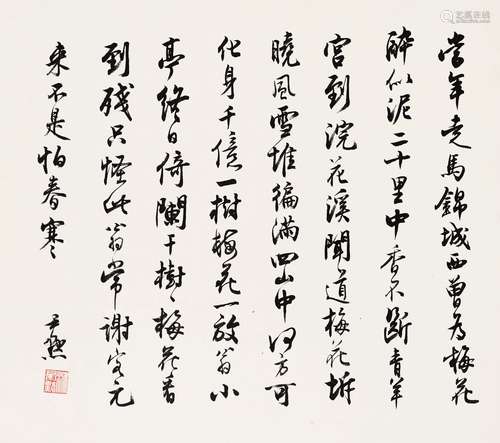 當年走馬錦城西曾為梅花
醉似泥二十里中香不斷青羊
宮到浣花溪聞道梅花坼
曉風雪堆徧滿四山中何方可
化身千億一樹梅花一放翁小
亭終日倚闌干樹〻梅花看
到殘只怪此翁常謝客元
來不是怕春寒
尹默